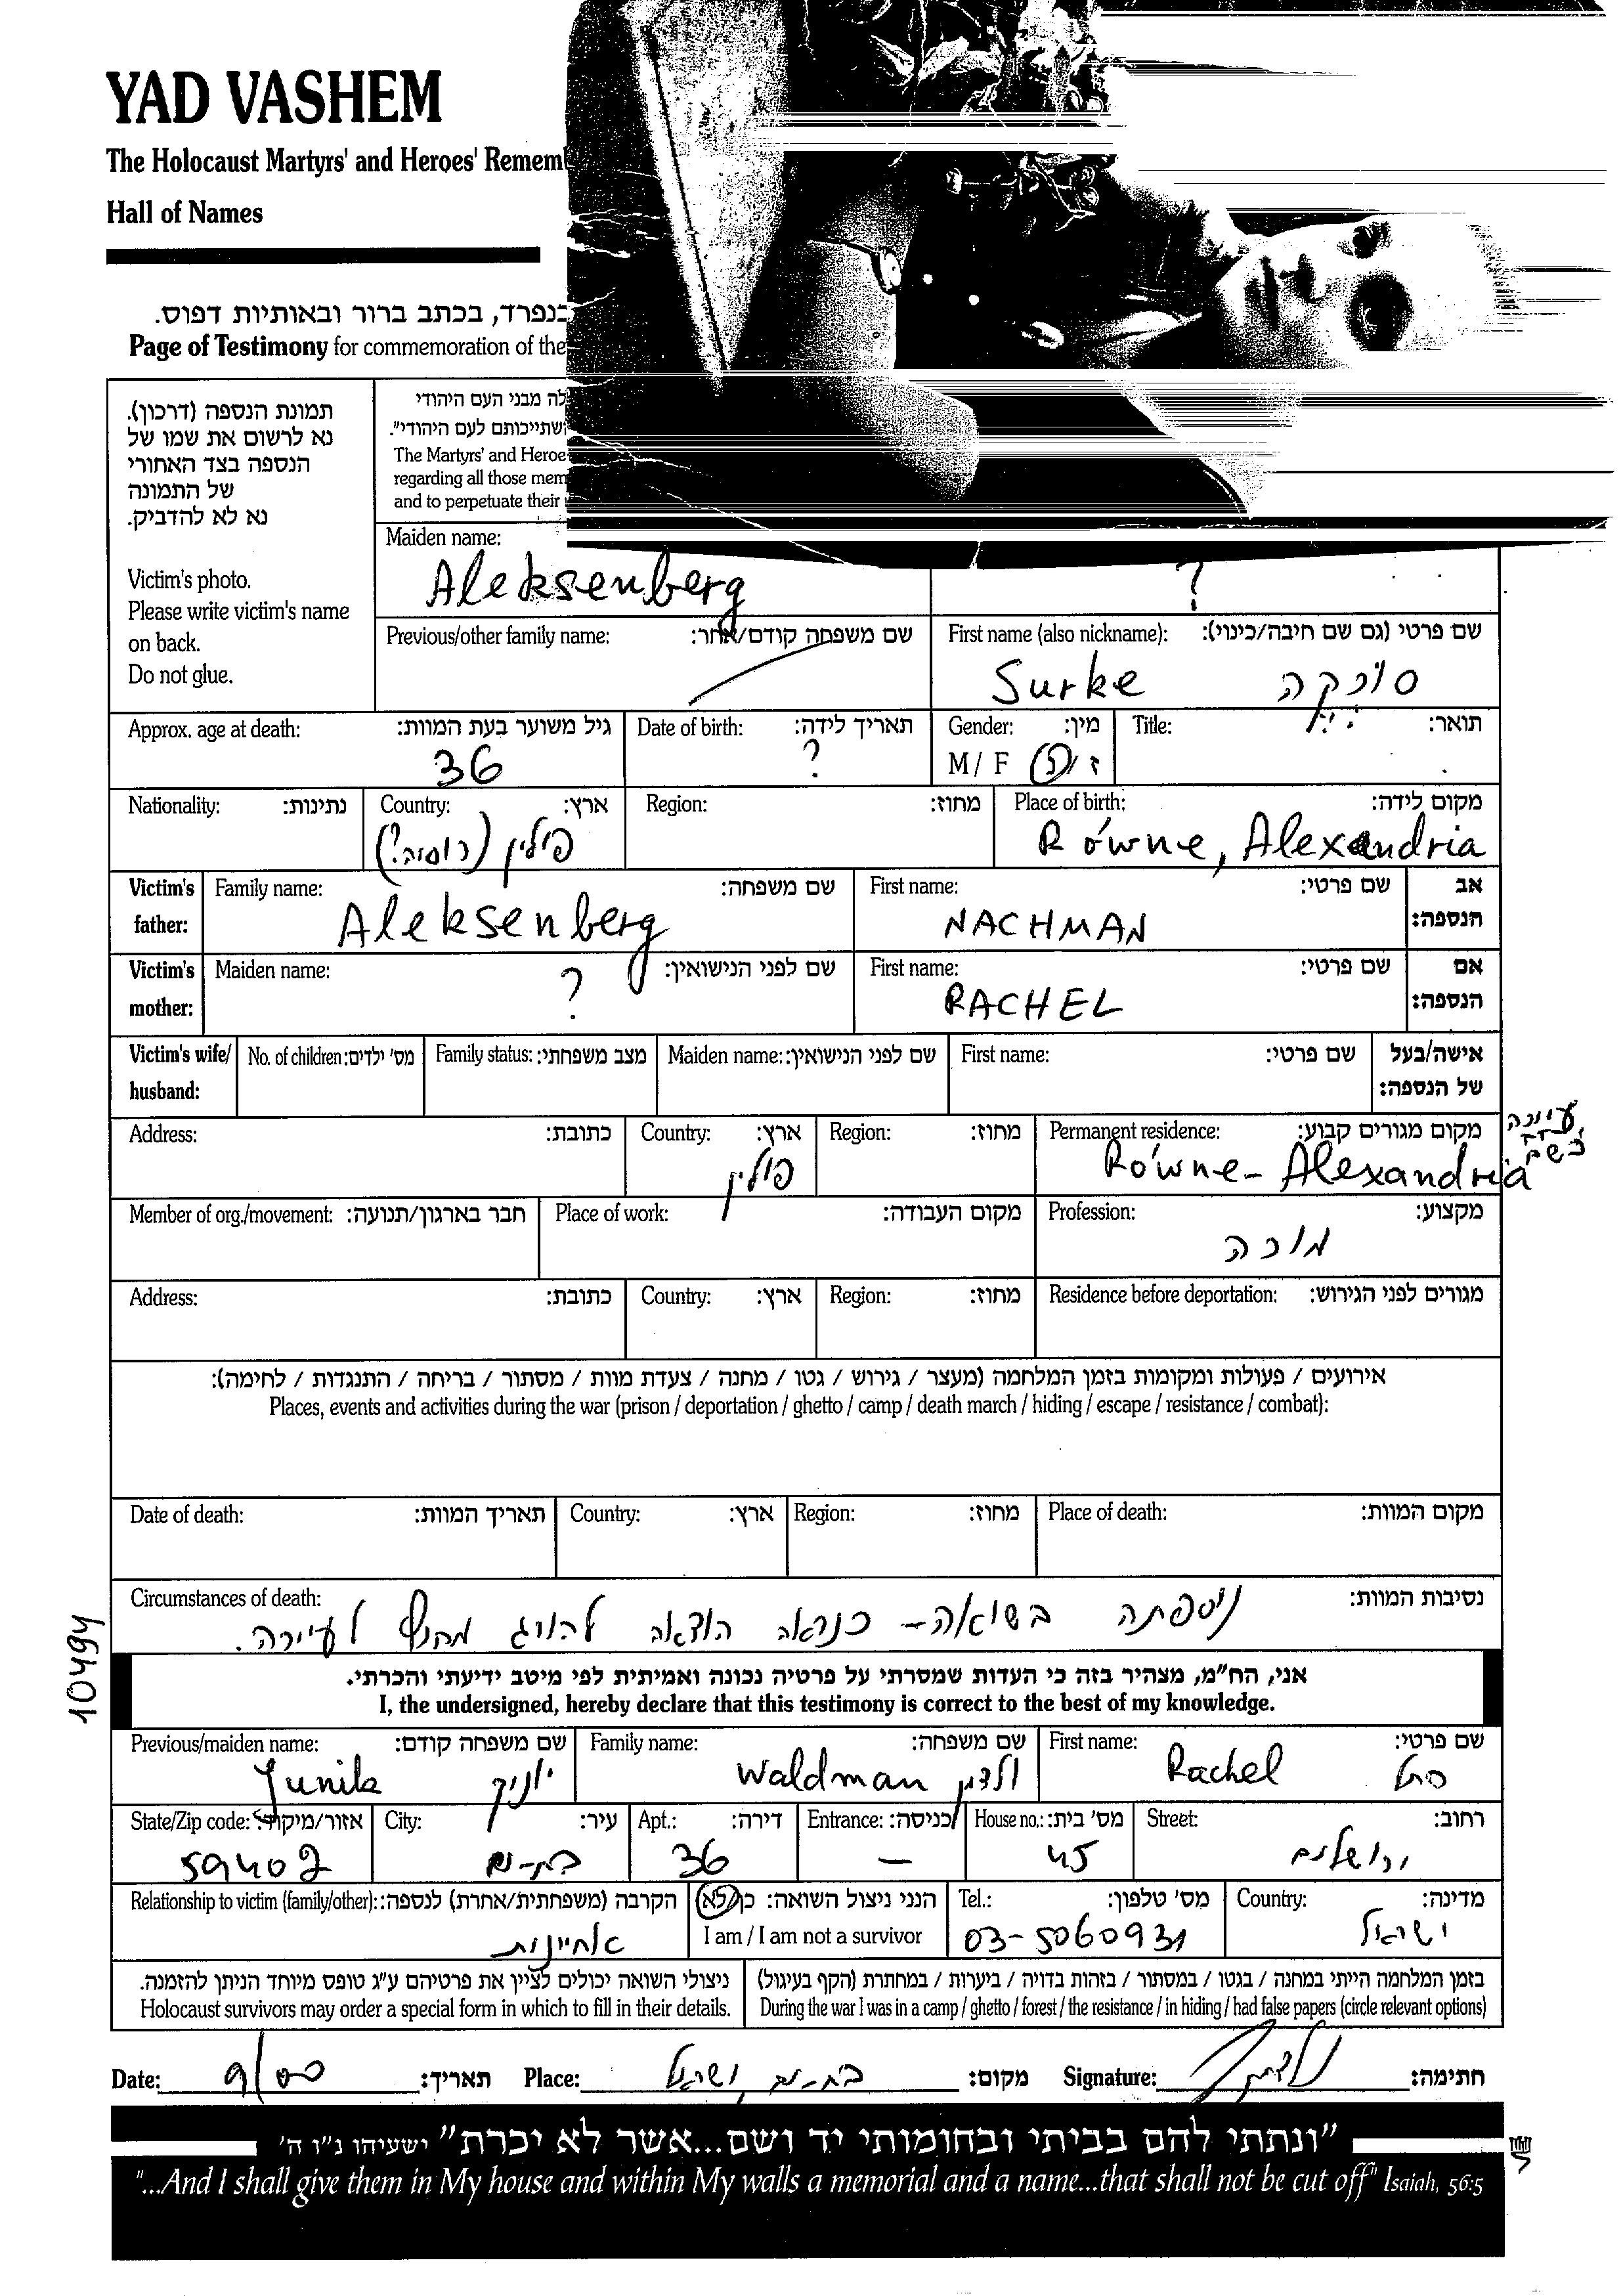 YAD VASHEM
The Holocaust Martyrs' and Heroes'
Hall of Names
בנפרד, בכתב ברור ובאותיות דפוס.
Page of Testimony for commemoration of the
תמונת הנספה (דרכון).
נא לרשום את שמו של
הנספה בצד האחורי
של התמונה
נא לא להדביק.
Victim's photo.
Please write victim's name
on back.
Do not glue.
לה מבני העם היהודי
שתייכותם לעם היהודי".
The Martyrs' and
regarding all those
and to perpetuate their
Maiden name:
Aleksenberg ?
Previous/other family name: שם משפחה קודם/אחר:
First name (also nickname): שם פרטי (גם שם חיבה/כינוי):
Surke סורקה
Approx. age at death: גיל משוער בעת המוות:
36
Date of birth: תאריך לידה:
?
Gender: מין:
M / F ז / נ
Title: תואר:
Nationality: נתינות:
Country: ארץ:
פולין (רוסיה?)
Region: מחוז:
Place of birth: מקום לידה:
Równe, Alexandria
Victim's father: אב הנספה:
Family name: שם משפחה:
Aleksenberg
First name: שם פרטי:
NACHMAN
Victim's mother: אם הנספה:
Maiden name: שם לפני הנישואין:
?
First name: שם פרטי:
RACHEL
Victim's wife/ husband: אישה/בעל של הנספה:
No. of children: מס' ילדים:
Family status: מצב משפחתי:
Maiden name: שם לפני הנישואין:
First name: שם פרטי:
Address: כתובת:
Country: ארץ:
פולין
Region: מחוז:
Permanent residence: מקום מגורים קבוע:
Równe - Alexandria
Member of org./movement: חבר בארגון/תנועה:
Place of work: מקום העבודה:
Profession: מקצוע:
מורה
Address: כתובת:
Country: ארץ:
Region: מחוז:
Residence before deportation: מגורים לפני הגירוש:
אירועים / פעולות ומקומות בזמן המלחמה (מעצר / גירוש / גטו / מחנה / צעדת מוות / מסתור / בריחה / התנגדות / לחימה):
Places, events and activities during the war (prison / deportation / ghetto / camp / death march / hiding / escape / resistance / combat):
Date of death: תאריך המוות:
Country: ארץ:
Region: מחוז:
Place of death: מקום המוות:
Circumstances of death: נסיבות המוות:
ניספתה בשואה - כנראה הוצאה להורג מחוץ לעיירה.
10494
אני, הח"מ, מצהיר בזה כי העדות שמסרתי על פרטיה נכונה ואמיתית לפי מיטב ידיעתי והכרתי.
I, the undersigned, hereby declare that this testimony is correct to the best of my knowledge.
Previous/maiden name: שם משפחה קודם:
Junik יוניק
Family name: שם משפחה:
Waldman ולדמן
First name: שם פרטי:
Rachel רחל
State/Zip code: אזור/מיקוד:
59402
City: עיר:
בת-ים
Apt.: דירה:
36
Entrance: כניסה:
–
House no.: מס' בית:
45
Street: רחוב:
ירושלים
Relationship to victim (family/other): הקרבה (משפחתית/אחרת) לנספה:
אחיינית
הנני ניצול השואה: כן/לא
I am / I am not a survivor
Tel.: מס' טלפון:
03-5060931
Country: מדינה:
ישראל
ניצולי השואה יכולים לציין את פרטיהם ע"ג טופס מיוחד הניתן להזמנה.
Holocaust survivors may order a special form in which to fill in their details.
בזמן המלחמה הייתי במחנה / בגטו / במסתור / בזהות בדויה / ביערות / במחתרת (הקף בעיגול)
During the war I was in a camp / ghetto / forest / the resistance / in hiding / had false papers (circle relevant options)
Date: 9/00 תאריך: Place: בת-ים, ישראל מקום: Signature: ולדמן חתימה:
"ונתתי להם בביתי ובחומותי יד ושם...אשר לא יכרת" ישעיהו נ"ו ה'
"...And I shall give them in My house and within My walls a memorial and a name...that shall not be cut off" Isaiah, 56:5